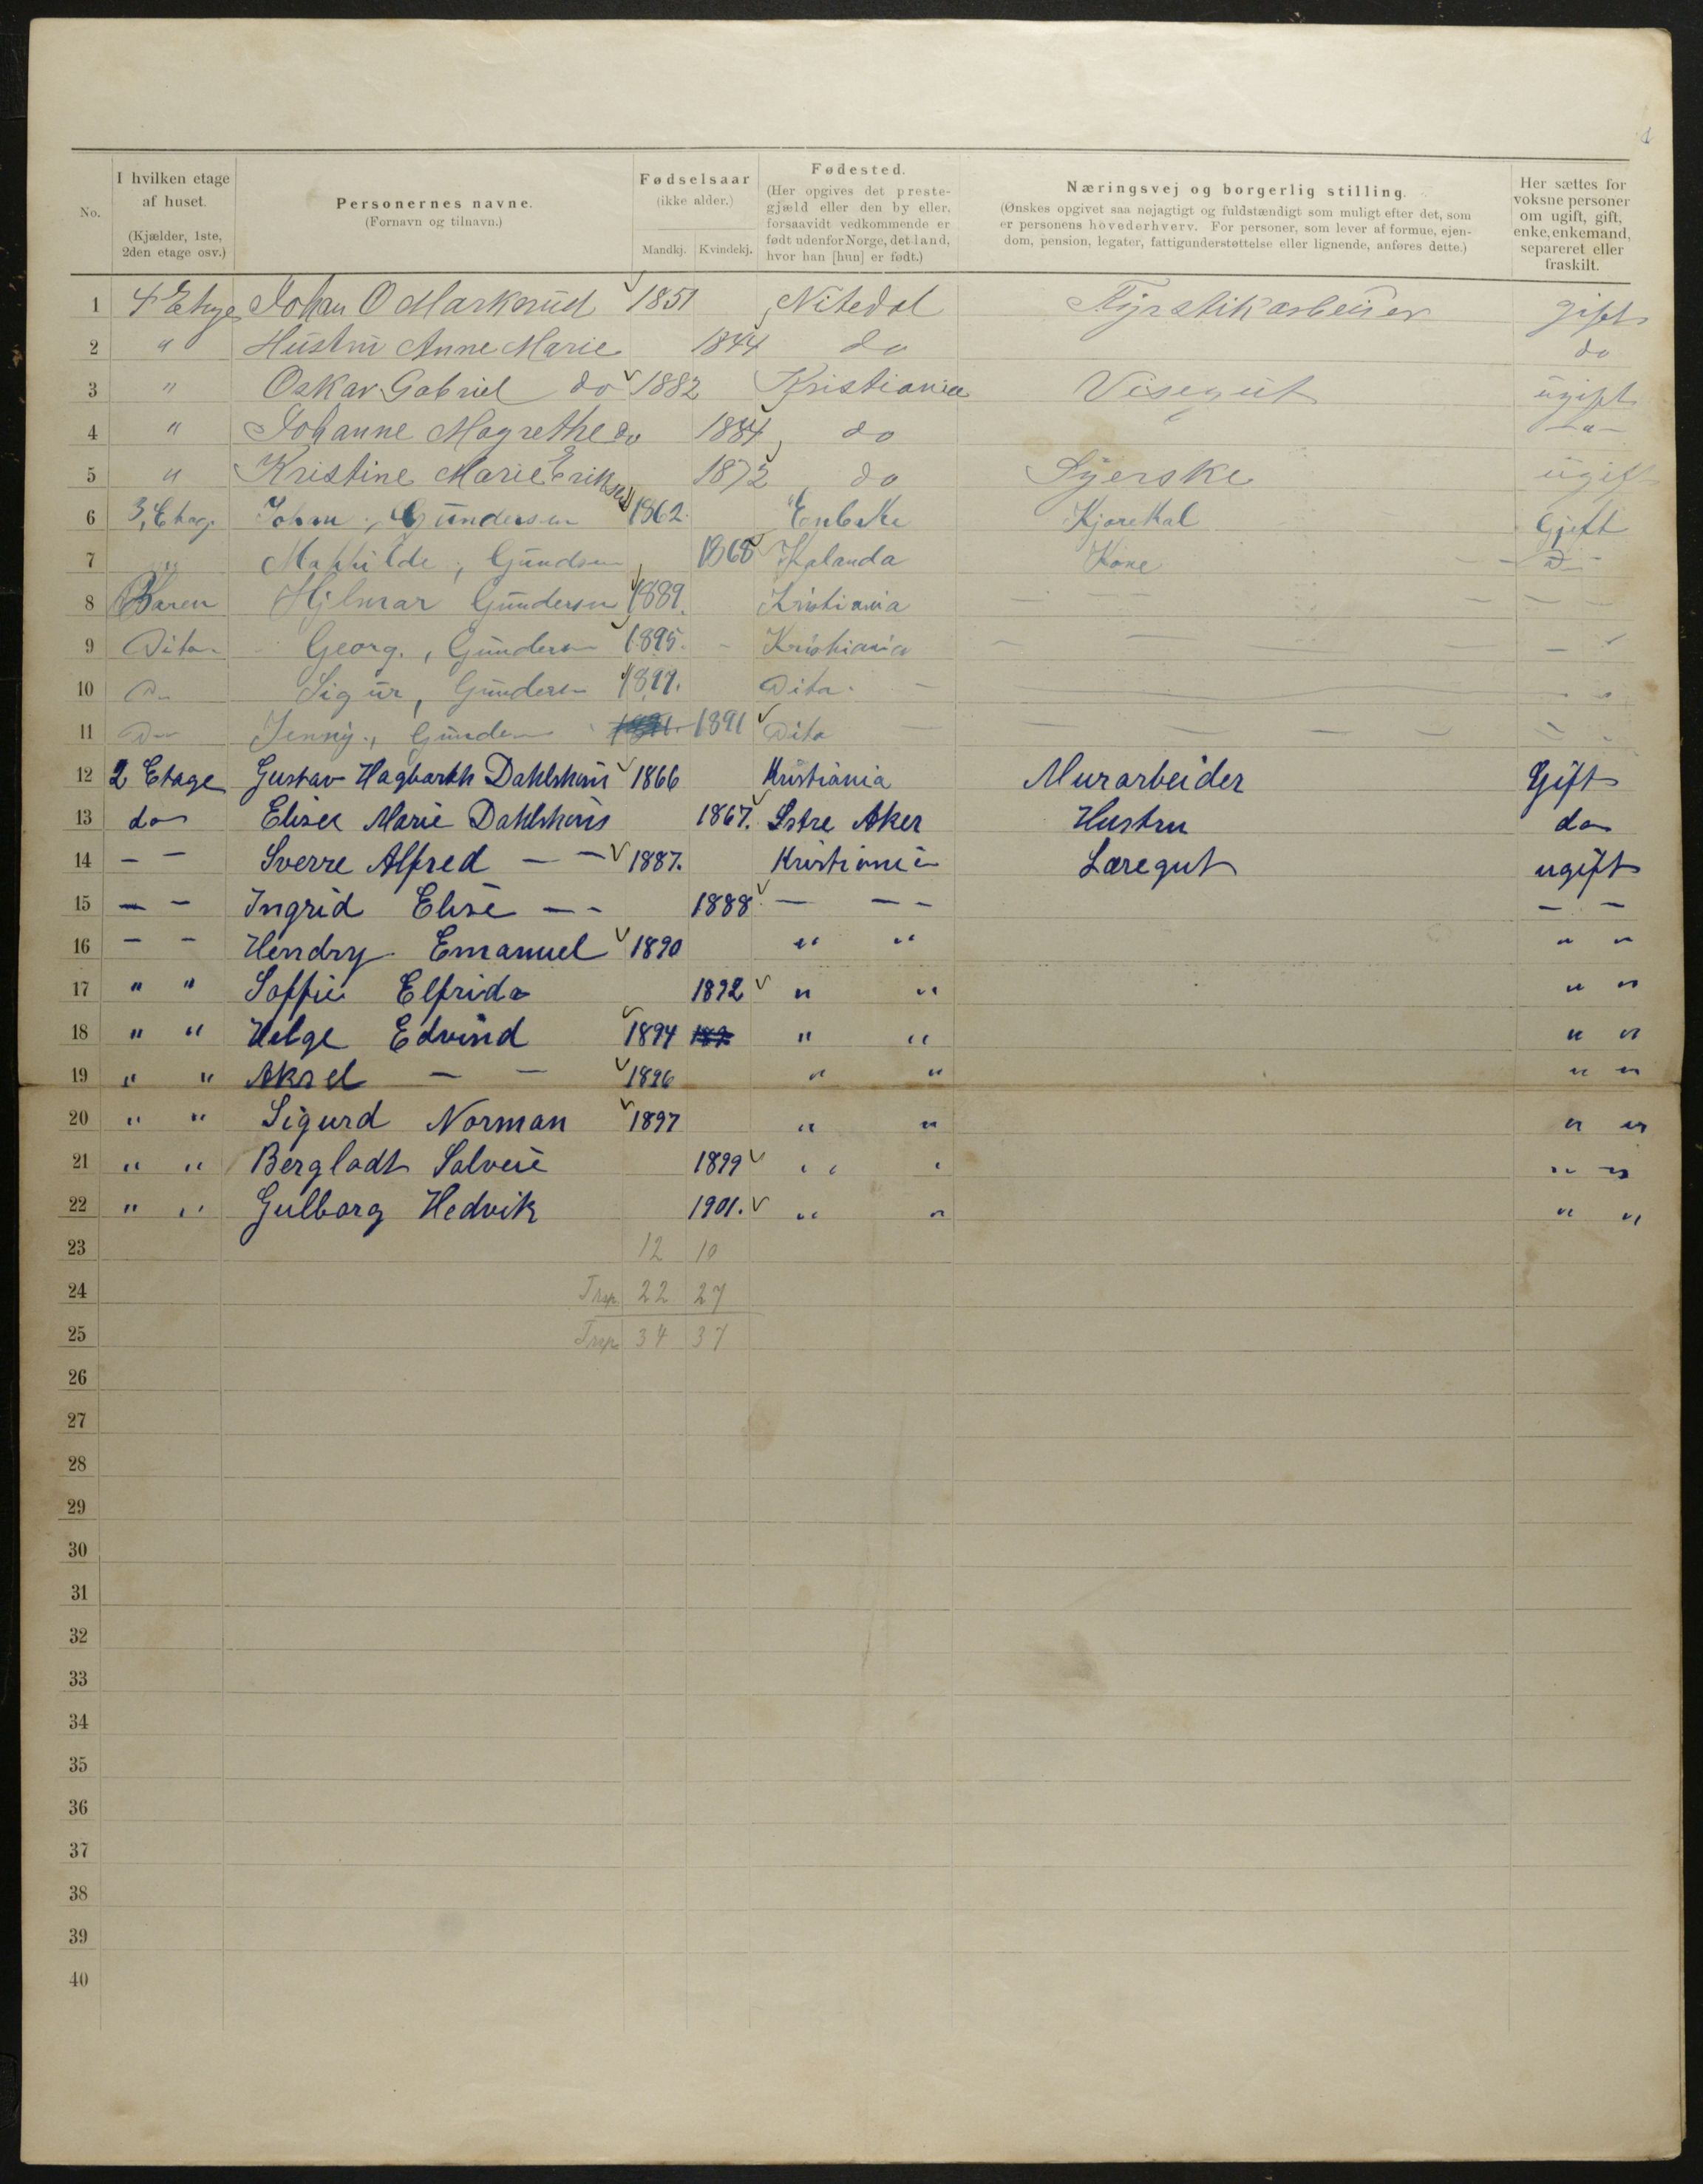 I hvilken etage af huset. (Kjælder, 1ste, 2den etage osv.)
No.
Personernes navne.
(Fornavn og tilnavn.)
Fødselsaar
(ikke alder.)
Mandkj. Kvindekj.
Fødested.
(Her opgives det preste-
gjæld eller den by eller,
forsaavidt vedkommende er
født udenfor Norge, det land,
hvor han [hun] er født.)
Næringsvej og borgerlig stilling.
(Ønskes opgivet saa nøjagtigt og fuldstændigt som muligt efter det, som
er personens hovederhverv. For personer, som lever af formue, ejen-
dom, pension, legater, fattigunderstøttelse eller lignende, anføres dette.)
Her sættes for
voksne personer
om ugift, gift,
enke, enkemand,
separeret eller
fraskilt.
1 4 Etage Johan O Markerud 1851 Nitedal Fyrstikarbeider gift
2 " Hustru Anne Marie 1844 do do
3 " Oskar Gabriel do 1882 Kristiania Visegut ugift
4 " Johanne Magrethe do 1884 do - " -
5 " Kristine Marie Eriksen 1872 do Syerske ugift
6 3, Etag. Johan, Gundersen 1862. Kjørekal Gjeft
7 " Mathilde, Gundsen 1868 Kone
8 Baren Hjlmar Gundersen 1889. Kristiania
9 Dito Georg., Gundersen 1895. Kristiania
10 Do Sigur, Gundersen 1897. Dito
11 Do Jenny., Gunder 1891 Dito
12 2 Etage Gustav Hagbarth Dahlshus 1866 Kristiania Murarbeider Gift
13 do Elisee Marie Dahlshus 1867. Østre Aker Hustru do
14 - - Sverre Alfred - - 1887. Kristiania Læregut ugift
15 - - Ingrid Elise - - 1888 - - - - -
16 - - Hendry Emanuel 1890 " " " "
17 " " Soffie Elfrida 1892 " " " "
18 " " Helge Edvind 1894 " " " "
19 " " Aksel - - 1896 " " " "
20 " " Sigurd Norman 1897 " " " "
21 " " Bergladt Salveie 1899 " " " "
22 " " Gulborg Hedvik 1901. " " " "
23 12 10
24 Trsp. 22 27
25 Trsp. 34 37
26
27
28
29
30
31
32
33
34
35
36
37
38
39
40